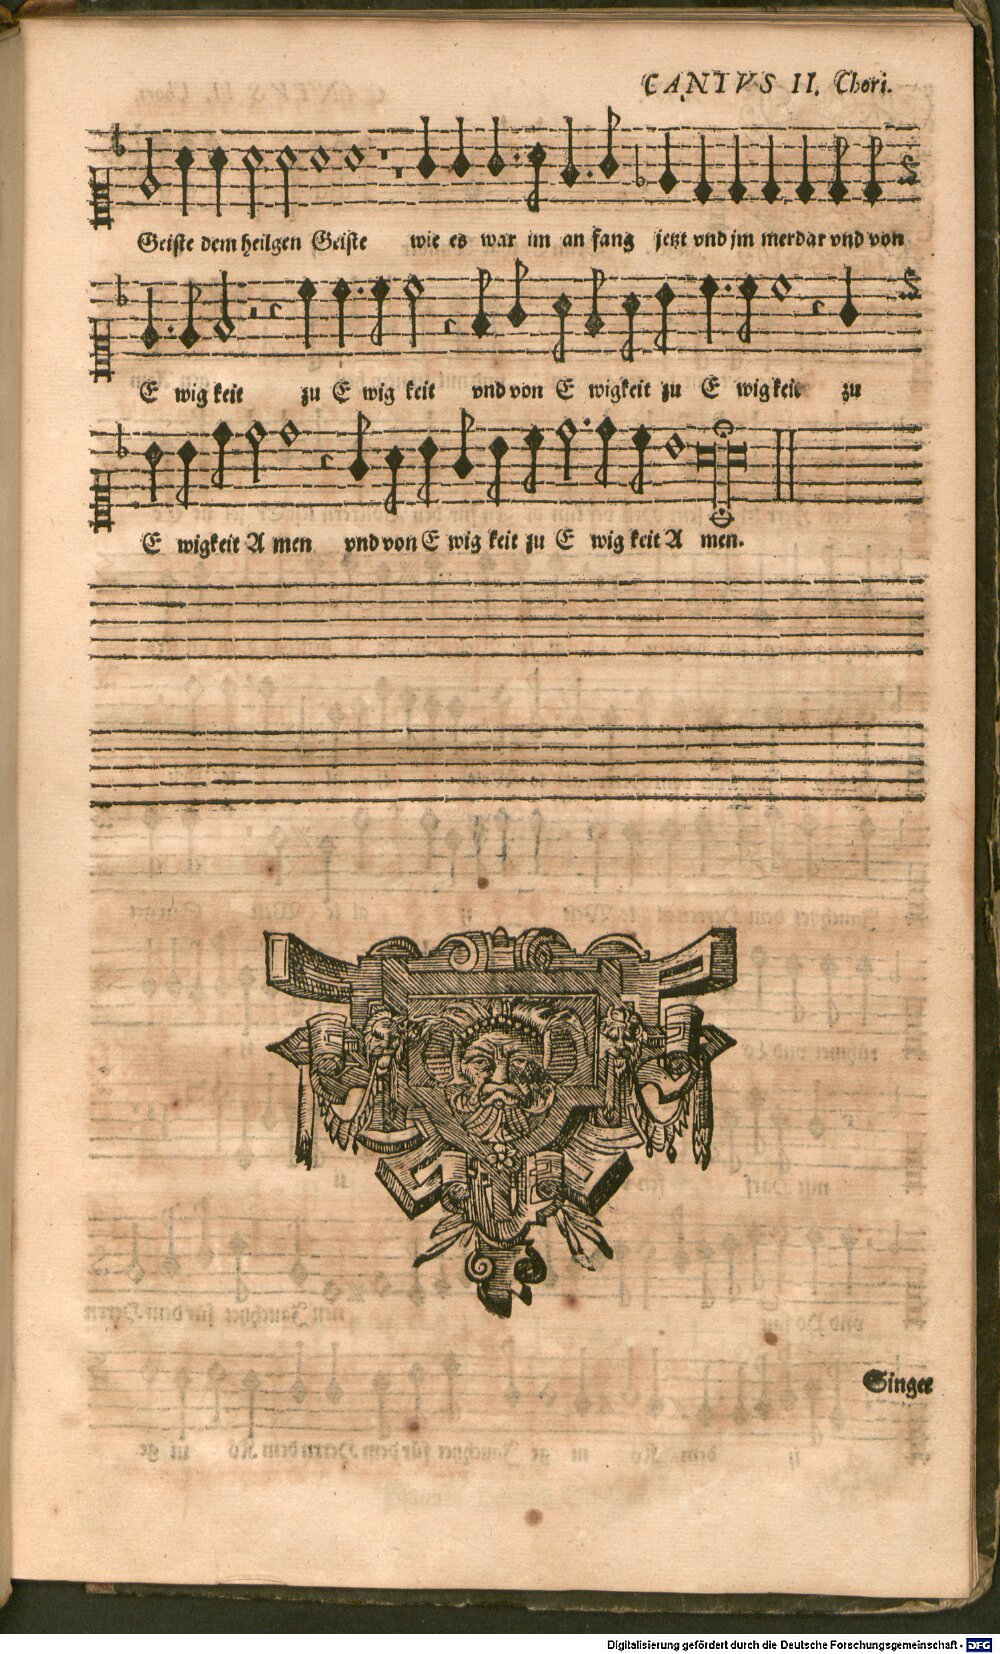 CANTVS II. Chori.
Geiste dem heilgen Geiste wie es war im an fang jetzt vnd jm merdar vnd von
E wig keit zu E wig keit vnd von E wigkeit zu E wigkeit zu
E wigkeit A men vnd von E wig keit zu E wig keit A men.
Singet
Digitalisierung gefördert durch die Deutsche Forschungsgemeinschaft - DFG